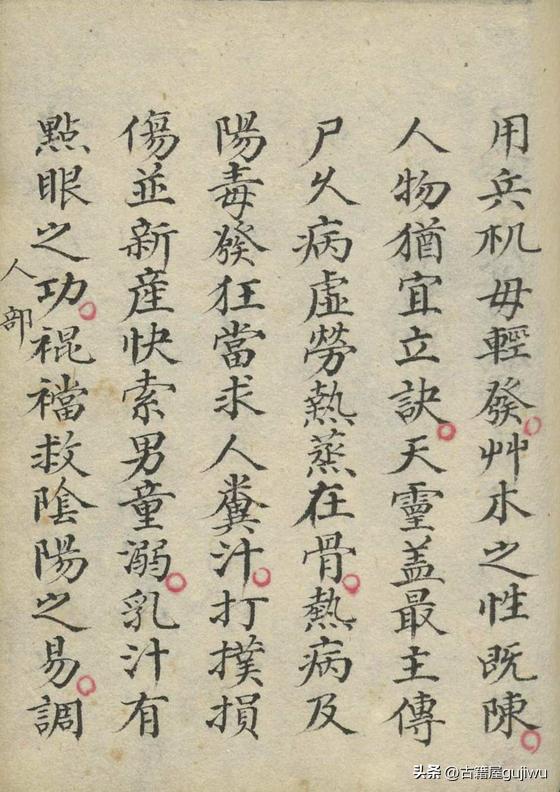 用兵机毋輕發艸木之性既陳
人物猶宜立訣天靈盖最主傳
尸久病虛勞熱蒸在骨熱病及
陽毒發狂當求人糞汁打撲損
傷並新産快索男童溺乳汁有
點眼之功裩襠救陰陽之易調
人部
头条 @古籍屋gujiwu